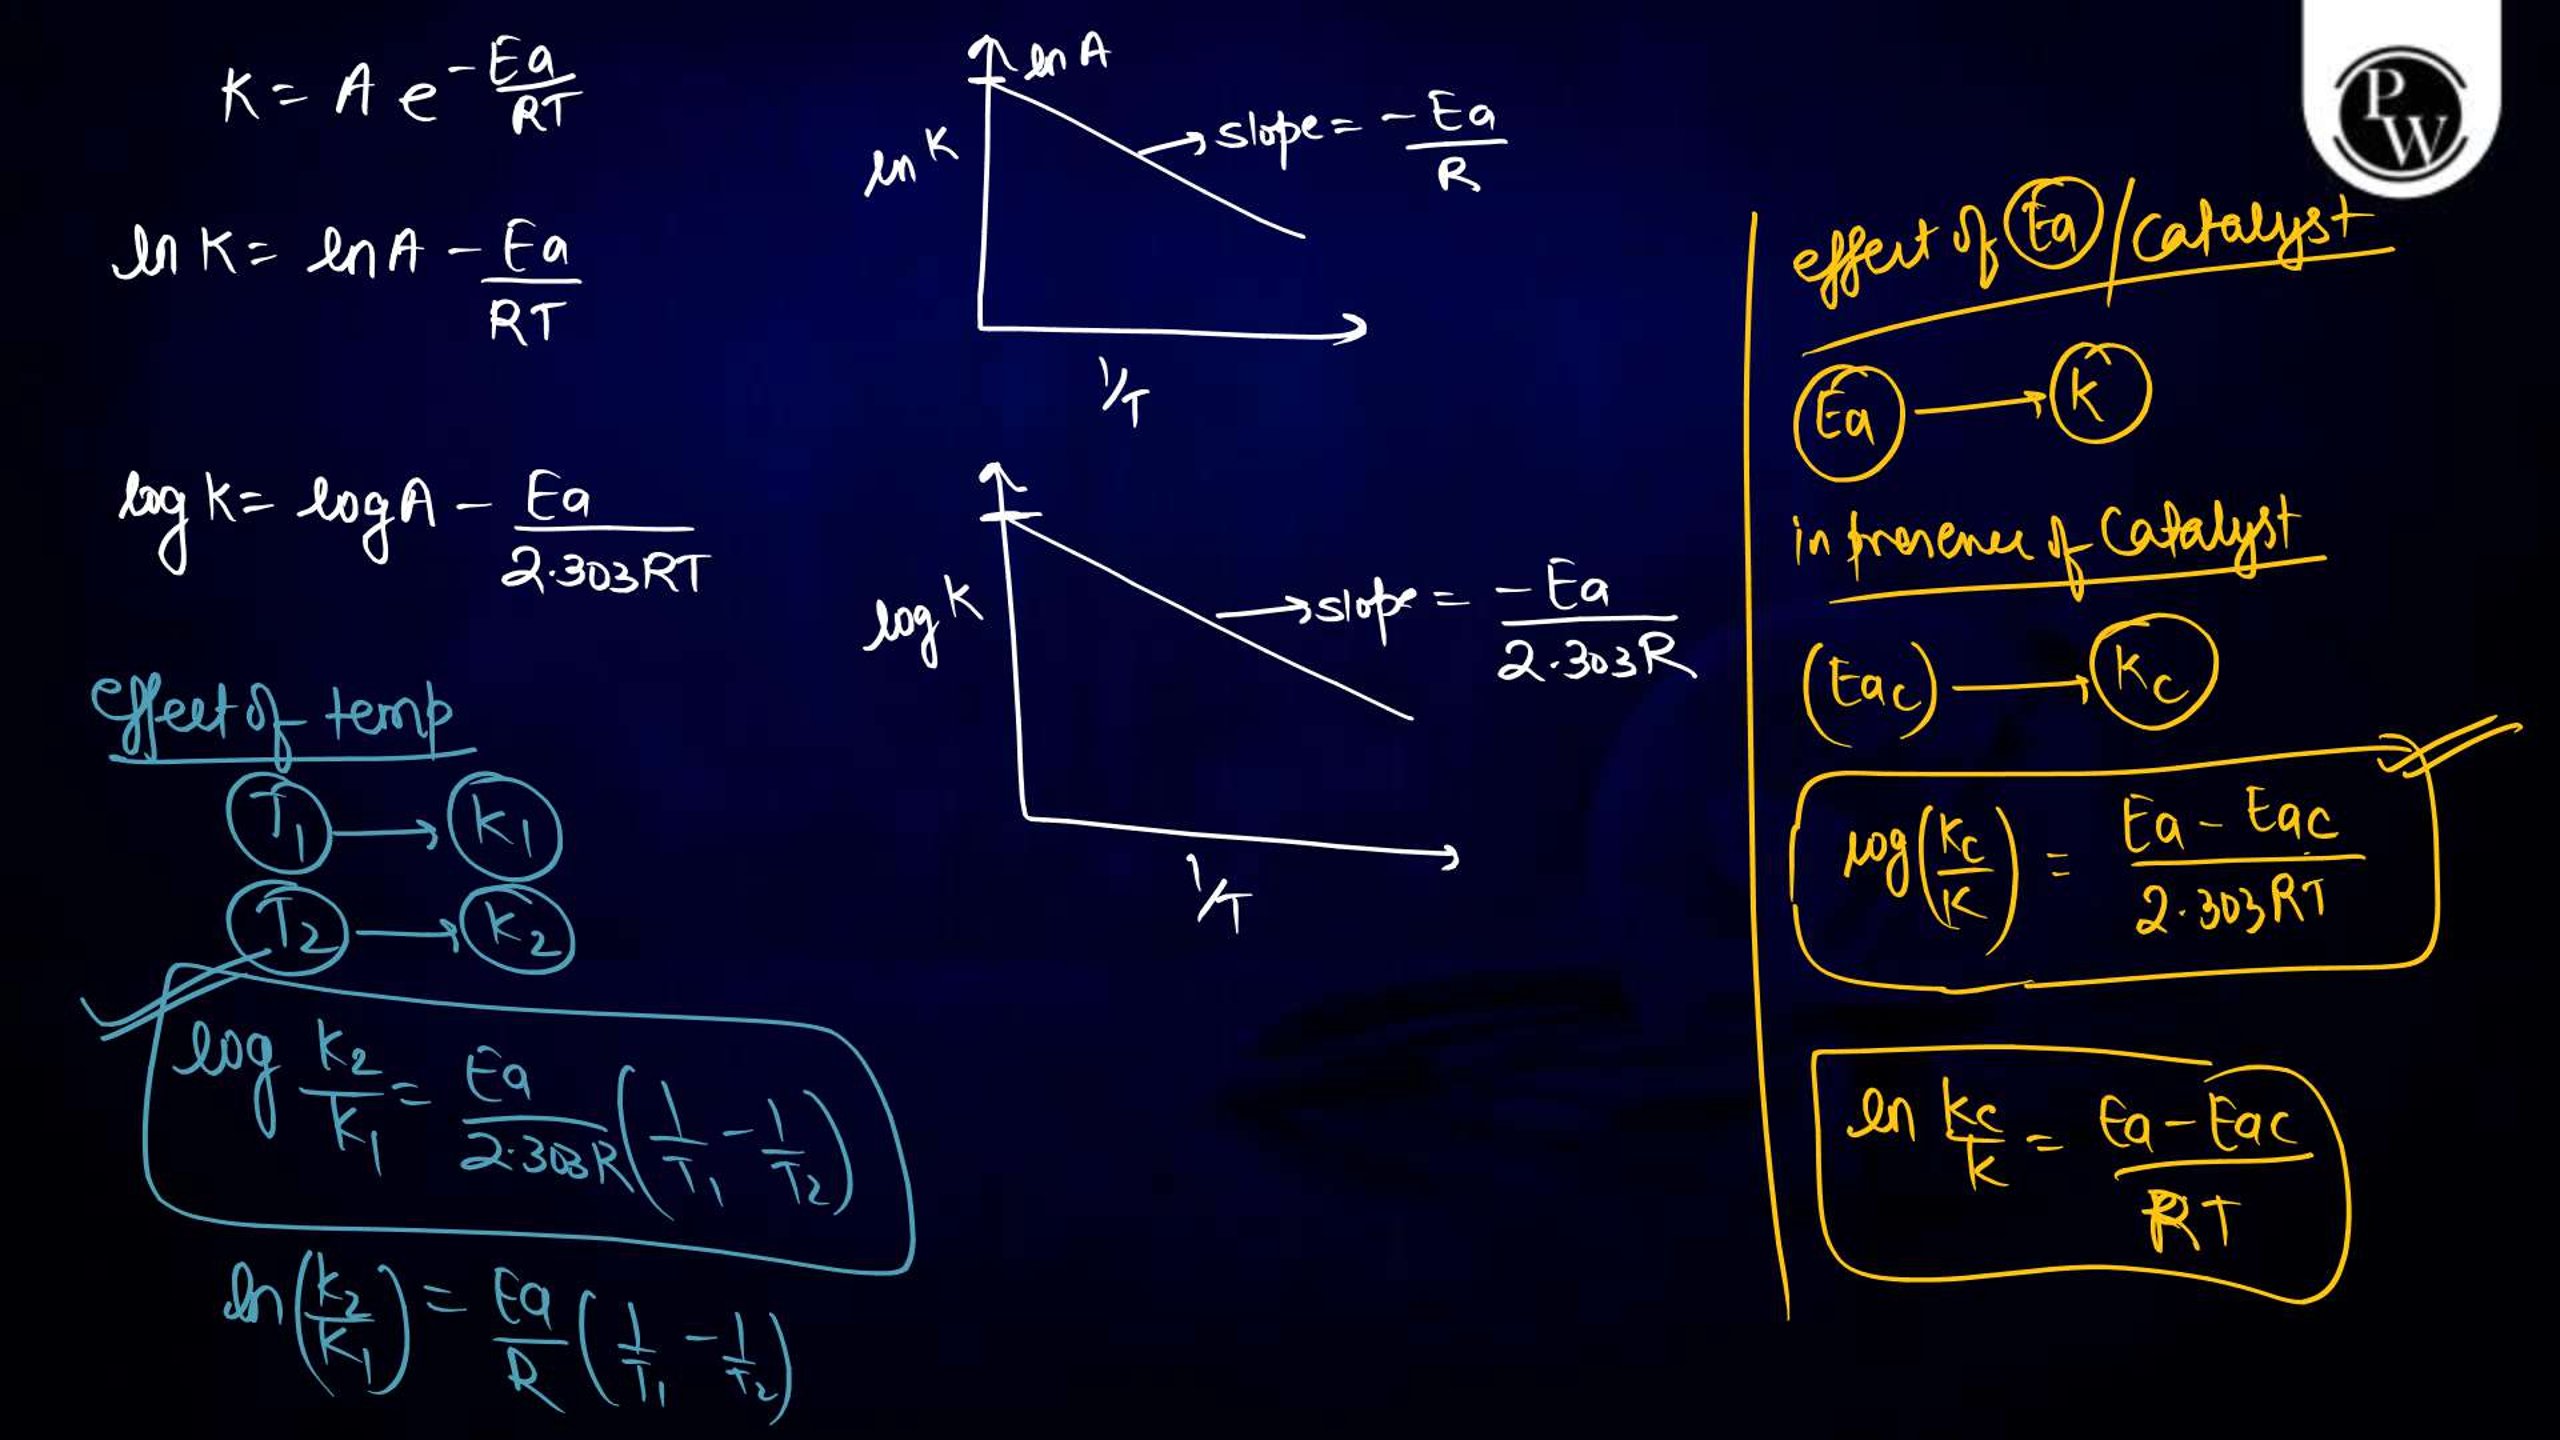 K = A e^-Ea/RT
ln K = ln A - Ea/RT
log K = log A - Ea/2.303RT
effect of temp
T1 → K1
T2 → K2
log K2/K1 = Ea/2.303R (1/T1 - 1/T2)
ln (K2/K1) = Ea/R (1/T1 - 1/T2)
ln A
ln K
slope = - Ea/R
1/T
log K
slope = -Ea/2.303R
1/T
PW
effect of Ea/Catalyst
Ea → K
in presence of Catalyst
(Eac) → Kc
log (Kc/K) = Ea - Eac/2.303RT
ln Kc/K = Ea - Eac/RT